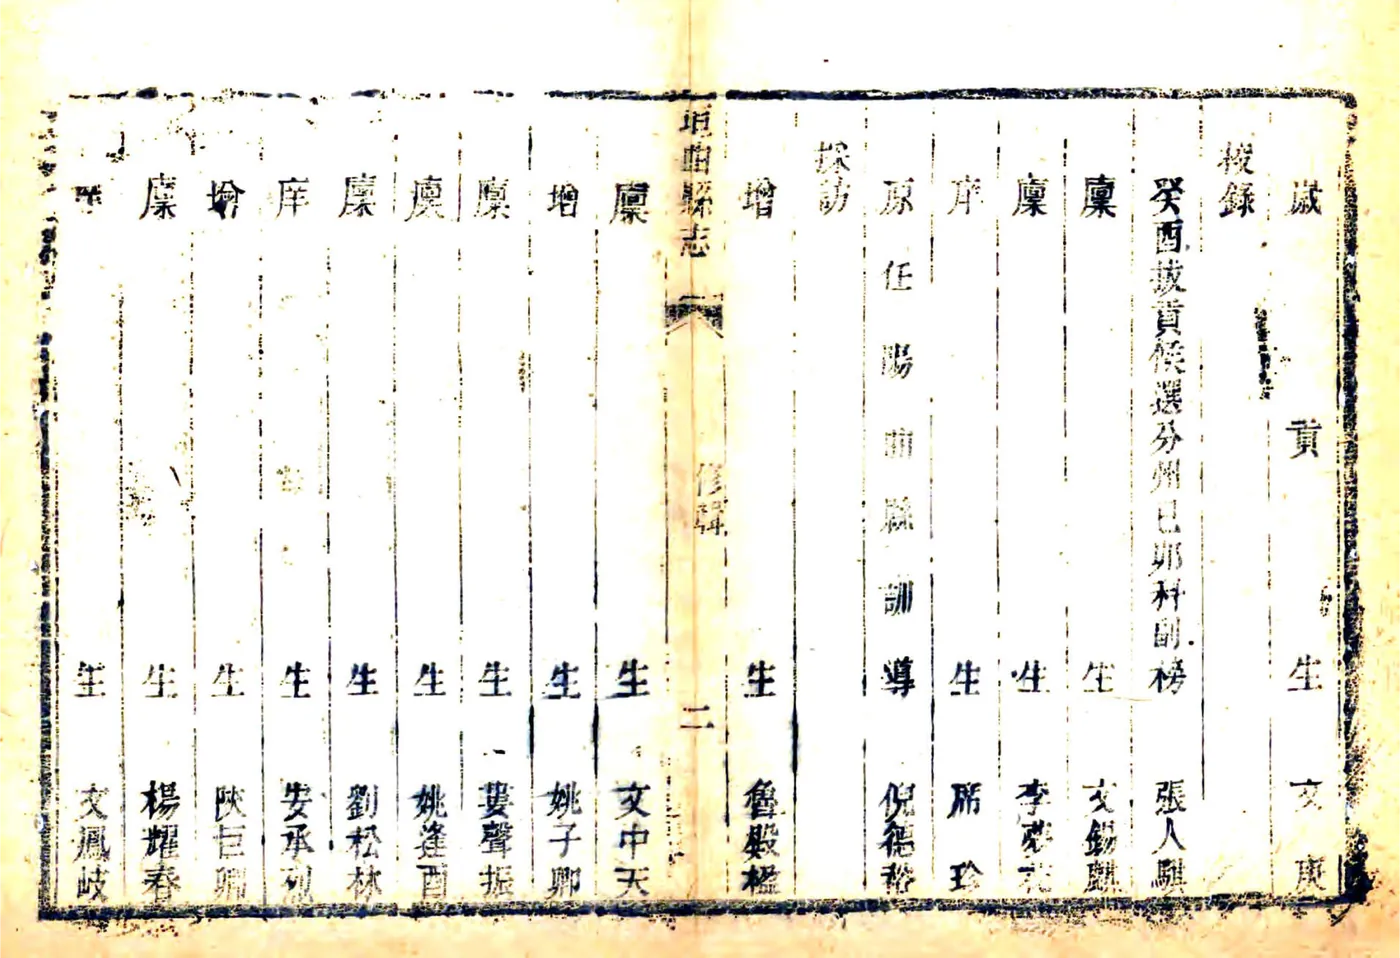 歲貢生文庚
校錄
癸酉拔貢候選分州己卯科副榜張人騏
廩生文錫麒
廩生李
庠生席珍
原任陽曲縣訓導倪德
採訪
增生魯殿楹
垣曲縣志
修輯
二
廩生文中天
增生姚子卿
廩生婁聲振
廩生姚逢酉
廩生劉松林
庠生安承烈
增生陝巨卿
廩生楊耀春
生文鳳岐